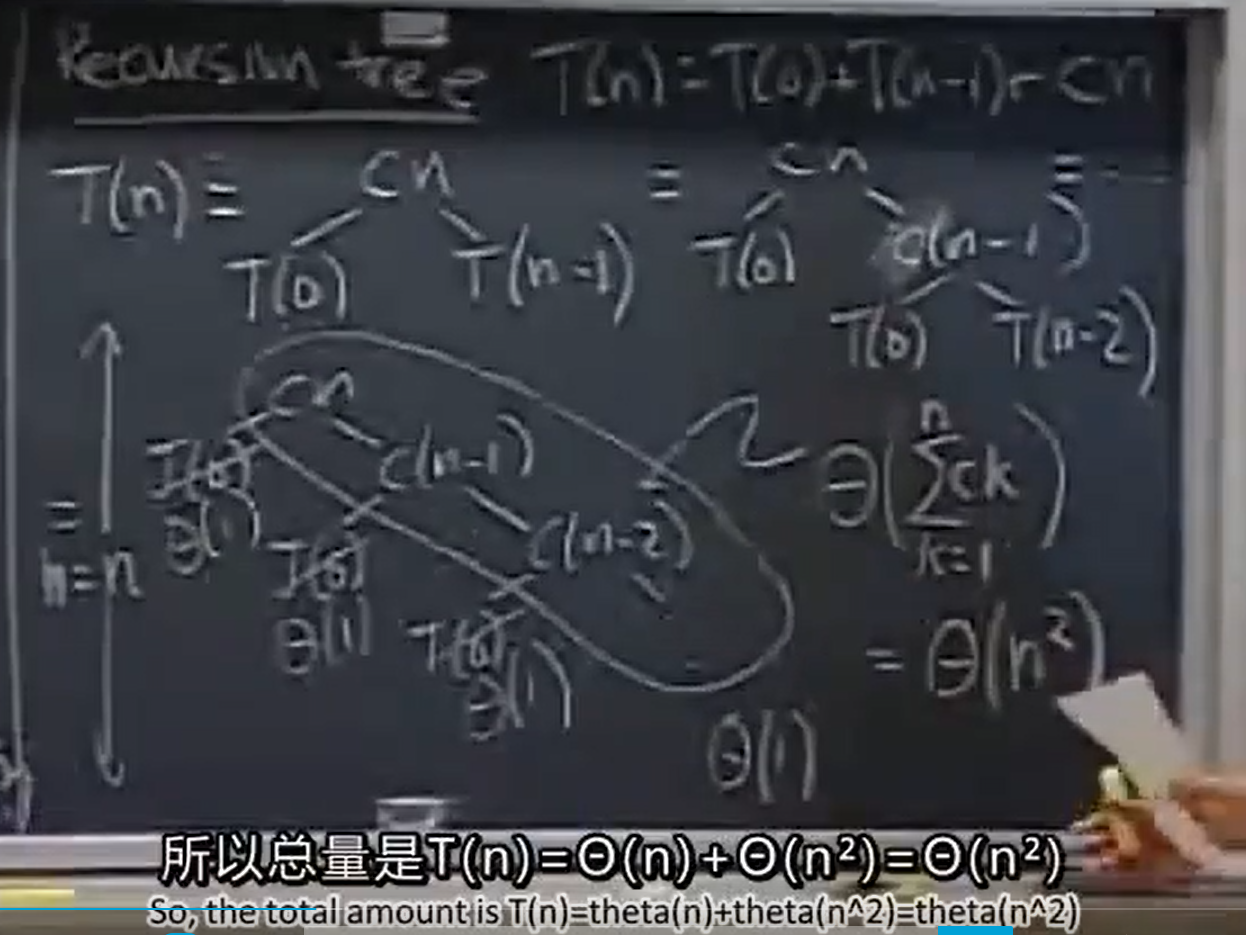 Recursion tree T(n)=T(0)+T(n-1)+cn
T(n) = cn = cn = ---
T(0) T(n-1) T(0) c(n-1)
T(0) T(n-2)
cn
T(0) c(n-1)
Θ(1)
T(0) c(n-2)
Θ(1)
T(0)
Θ(1)
Θ(1)
=
h=n
Θ(∑ck)
n
k=1
= Θ(n²)
所以总量是T(n)=Θ(n)+Θ(n²)=Θ(n²)
So, the total amount is T(n)=theta(n)+theta(n^2)=theta(n^2)